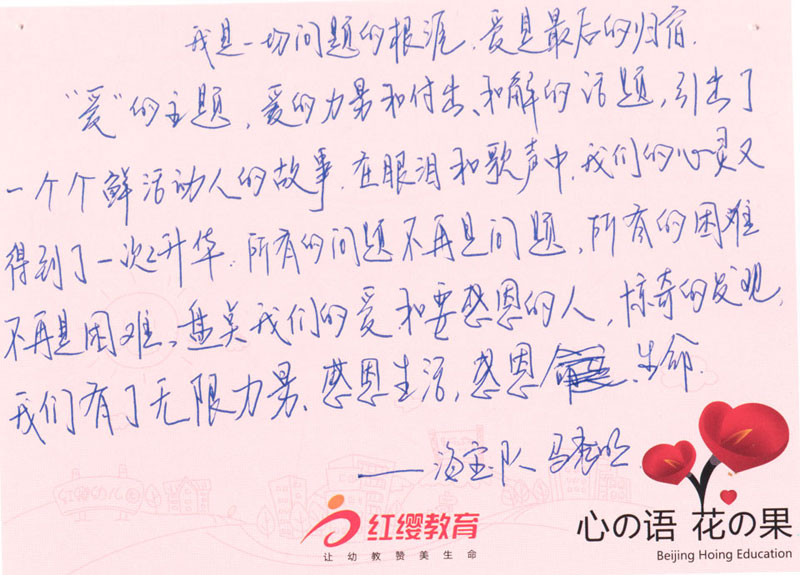 我是一切问题的根源.爱是最后的归宿.
"爱"的主题,爱的力量和付出、和解的话题,引出了
一个个鲜活动人的故事.在眼泪和歌声中,我们的心灵又
得到了一次升华.所有的问题不再是问题,所有的困难
不再是困难、我们的爱和要感恩的人,惊奇的发现,
我们有了无限力量、感恩生活,感恩生命.
——海宝队
红缨幼儿园
红缨教育
让幼教赞美生命
心の语 花の果
Beijing Hoing Education